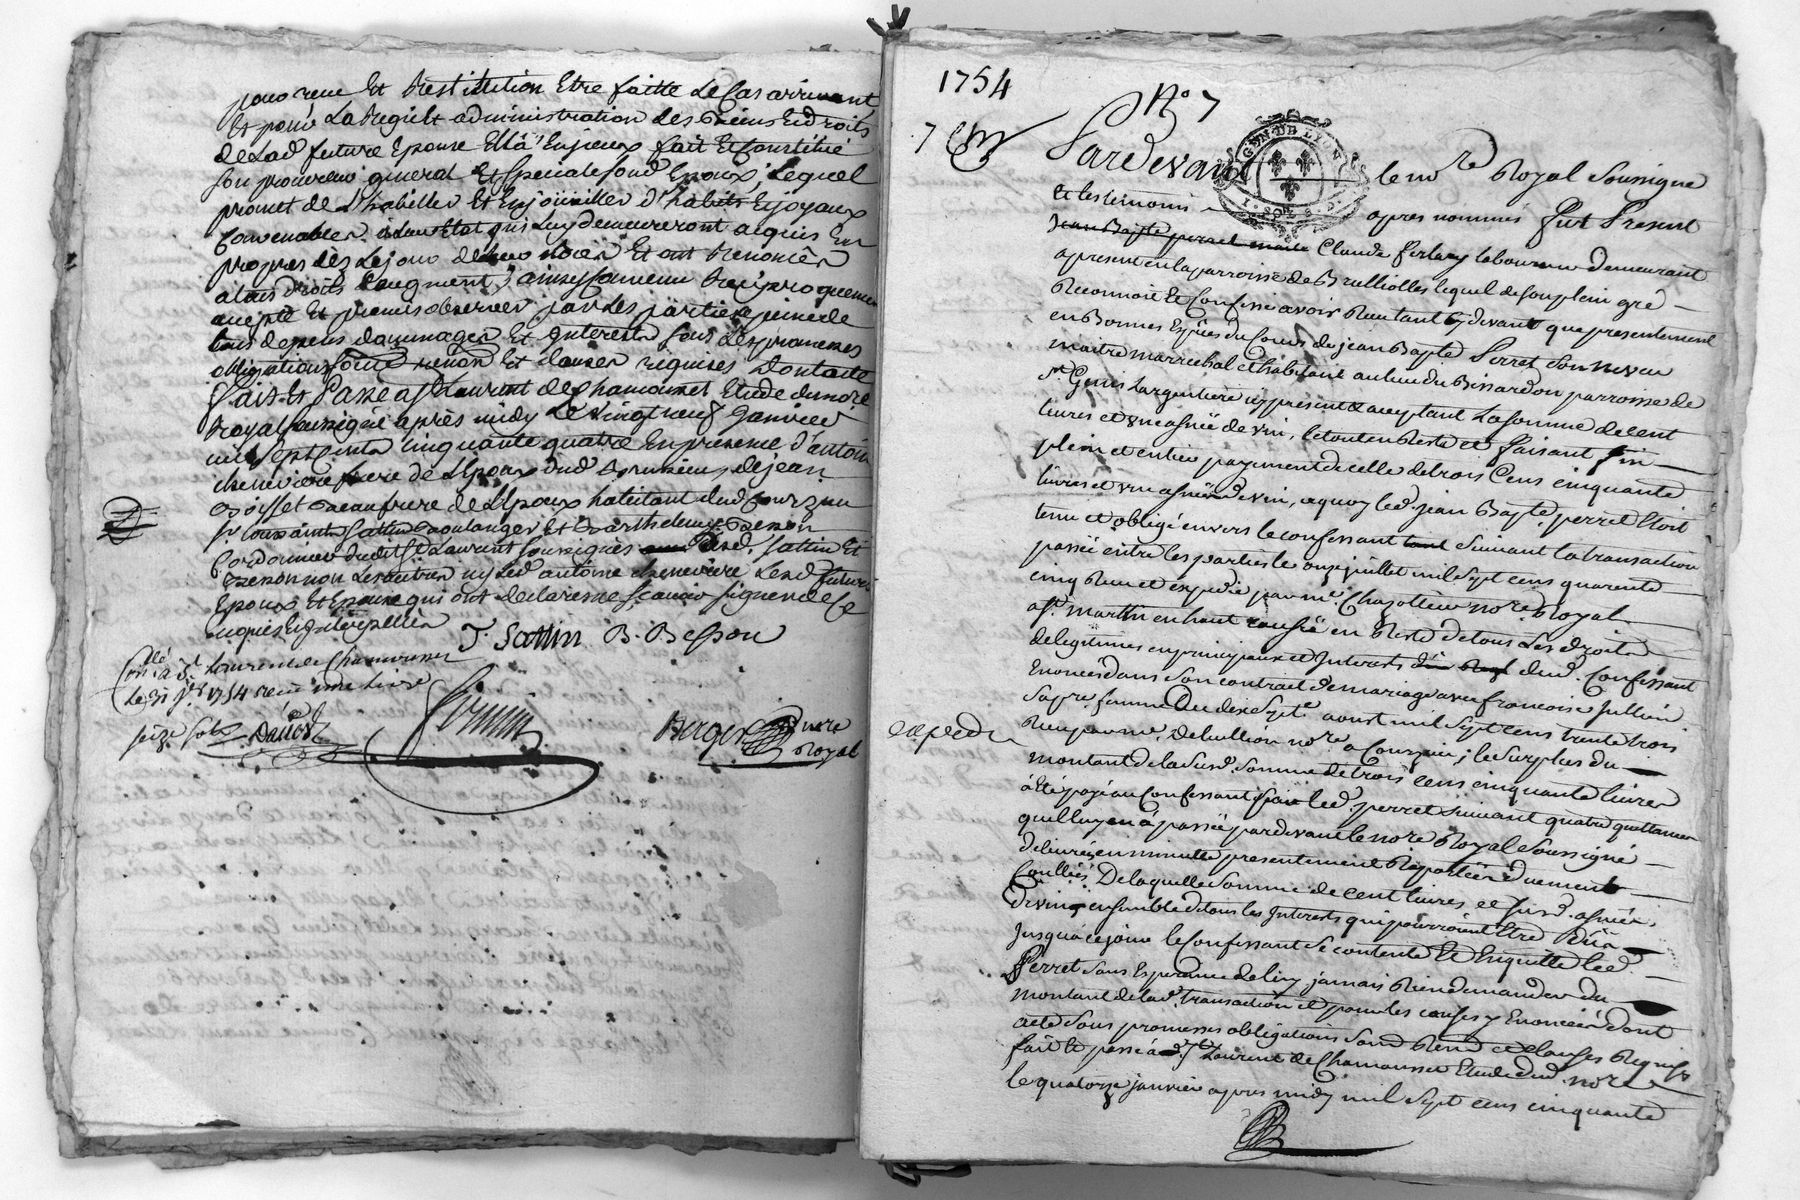 pouvoir Et Restitution Etre faitte Le Cas arrivant
Et pour La Regie Et administration des Biens Et droits
de Lad. future Epouse Elle à Enjeux fait Et Constitué
son procureur general Et Special led. Epoux, Lequel
promet de L'habiller Et Enjoüailler d'habits Et joyaux
Convenables à leur Etat qui Luy demeureront acquis En
propres dès Le jour de Leur noces Et ont Renoncé
a tous droits d'augment, ainsy convenu Reciproquement
accepté Et promis observer par Les parties a peine de
tous depens dommages Et Interests sous Les promesses
obligations renon Et clauses requises Dont acte
Fait Et Passé a St Laurent de Chamousset Etude du no.re
Royal soussigné après midy Le vingt neuf Janvier
mil sept cents cinquante quatre En presence d'antoine
cheneviere frere de L'Epoux dud. de jean
Boisset Beaufrere de L'Epoux habitant dud. Courzieu
sr. toussaint Sattin Boulanger Et Barthelemy Besson
Cordonnier dudit St Laurent soussignés Lesd. Sattin Et
Besson non Les autres ny Led. antoine cheneviere Lesd. futurs
Epoux Et Epouse qui ont declaré ne scavoir signer de Ce
Enquis Et Interpellés
T. Sattin B. Besson
Con.llé à St Laurent de Chamousset
Le 31 j.er 1754 receu une livre
seize sols
Berger no.re
Royal
1754
N.o 7
Pardevant le no.re Royal Soussigné
Et les temoins après nommés fut Present
Claude ferlay laboureur demeurant
apresent en la parroisse de Brulliolles lequel de son plein gré
Reconnoit Et Confesse avoir Reçu tant cy devant que presentement
en Bonnes Espèces du Cours de jean Bapte Perret Son neveu
maitre marrechal et habitant au lieu du Bissardon parroisse de
St Genis Largentiere icy present et acceptant La somme de cent
livres et une asnée de vin, le tout en Reste et faisant fin
plein et entier payement de celle de trois Cens cinquante
livres et une asnée de vin, aquoy led. jean Bapte perret Etoit
tenu et obligé envers le confessant Suivant la transaction
passée entre les parties le onze juillet mil Sept cens quarente
cinq Reçue et expediée par me. Chazottier no.re Royal
a St. Martin en haut en Reste de tous Les droits
de legitimes en principaux et Interests dud. Confessant
Enoncés dans son contrat de mariage avec francoise Jullien
sa pre. femme aoust mil Sept cens trente trois
Reçu par me. Debullion no.re a Courzieu; le surplus du
montant de la susd. Somme de trois cens cinquante livres
à été payé au Confessant par led. perret suivant quatre quittances
quil luy en à passé pardevant le no.re Royal Soussigné
delivrées en minutte presentement duement
Conllées De laquelle Somme de cent livres et susd. asnée
De vin, ensemble de tous les Interests qui pourroient Etre Dûs
Jusquà ce jour le Confessant Se contente Et Enquitte led.
Perret Sans Esperance de luy jamais Rien demander du
montant de lad. transaction et pour les causes y Enoncées dont
acte sous promesses obligations Soum. Renon. et clauses Requises
fait Et passé a St Laurent de Chamousset Etude dud. no.re
le quatorze janvier apres midy mil Sept cens cinquante